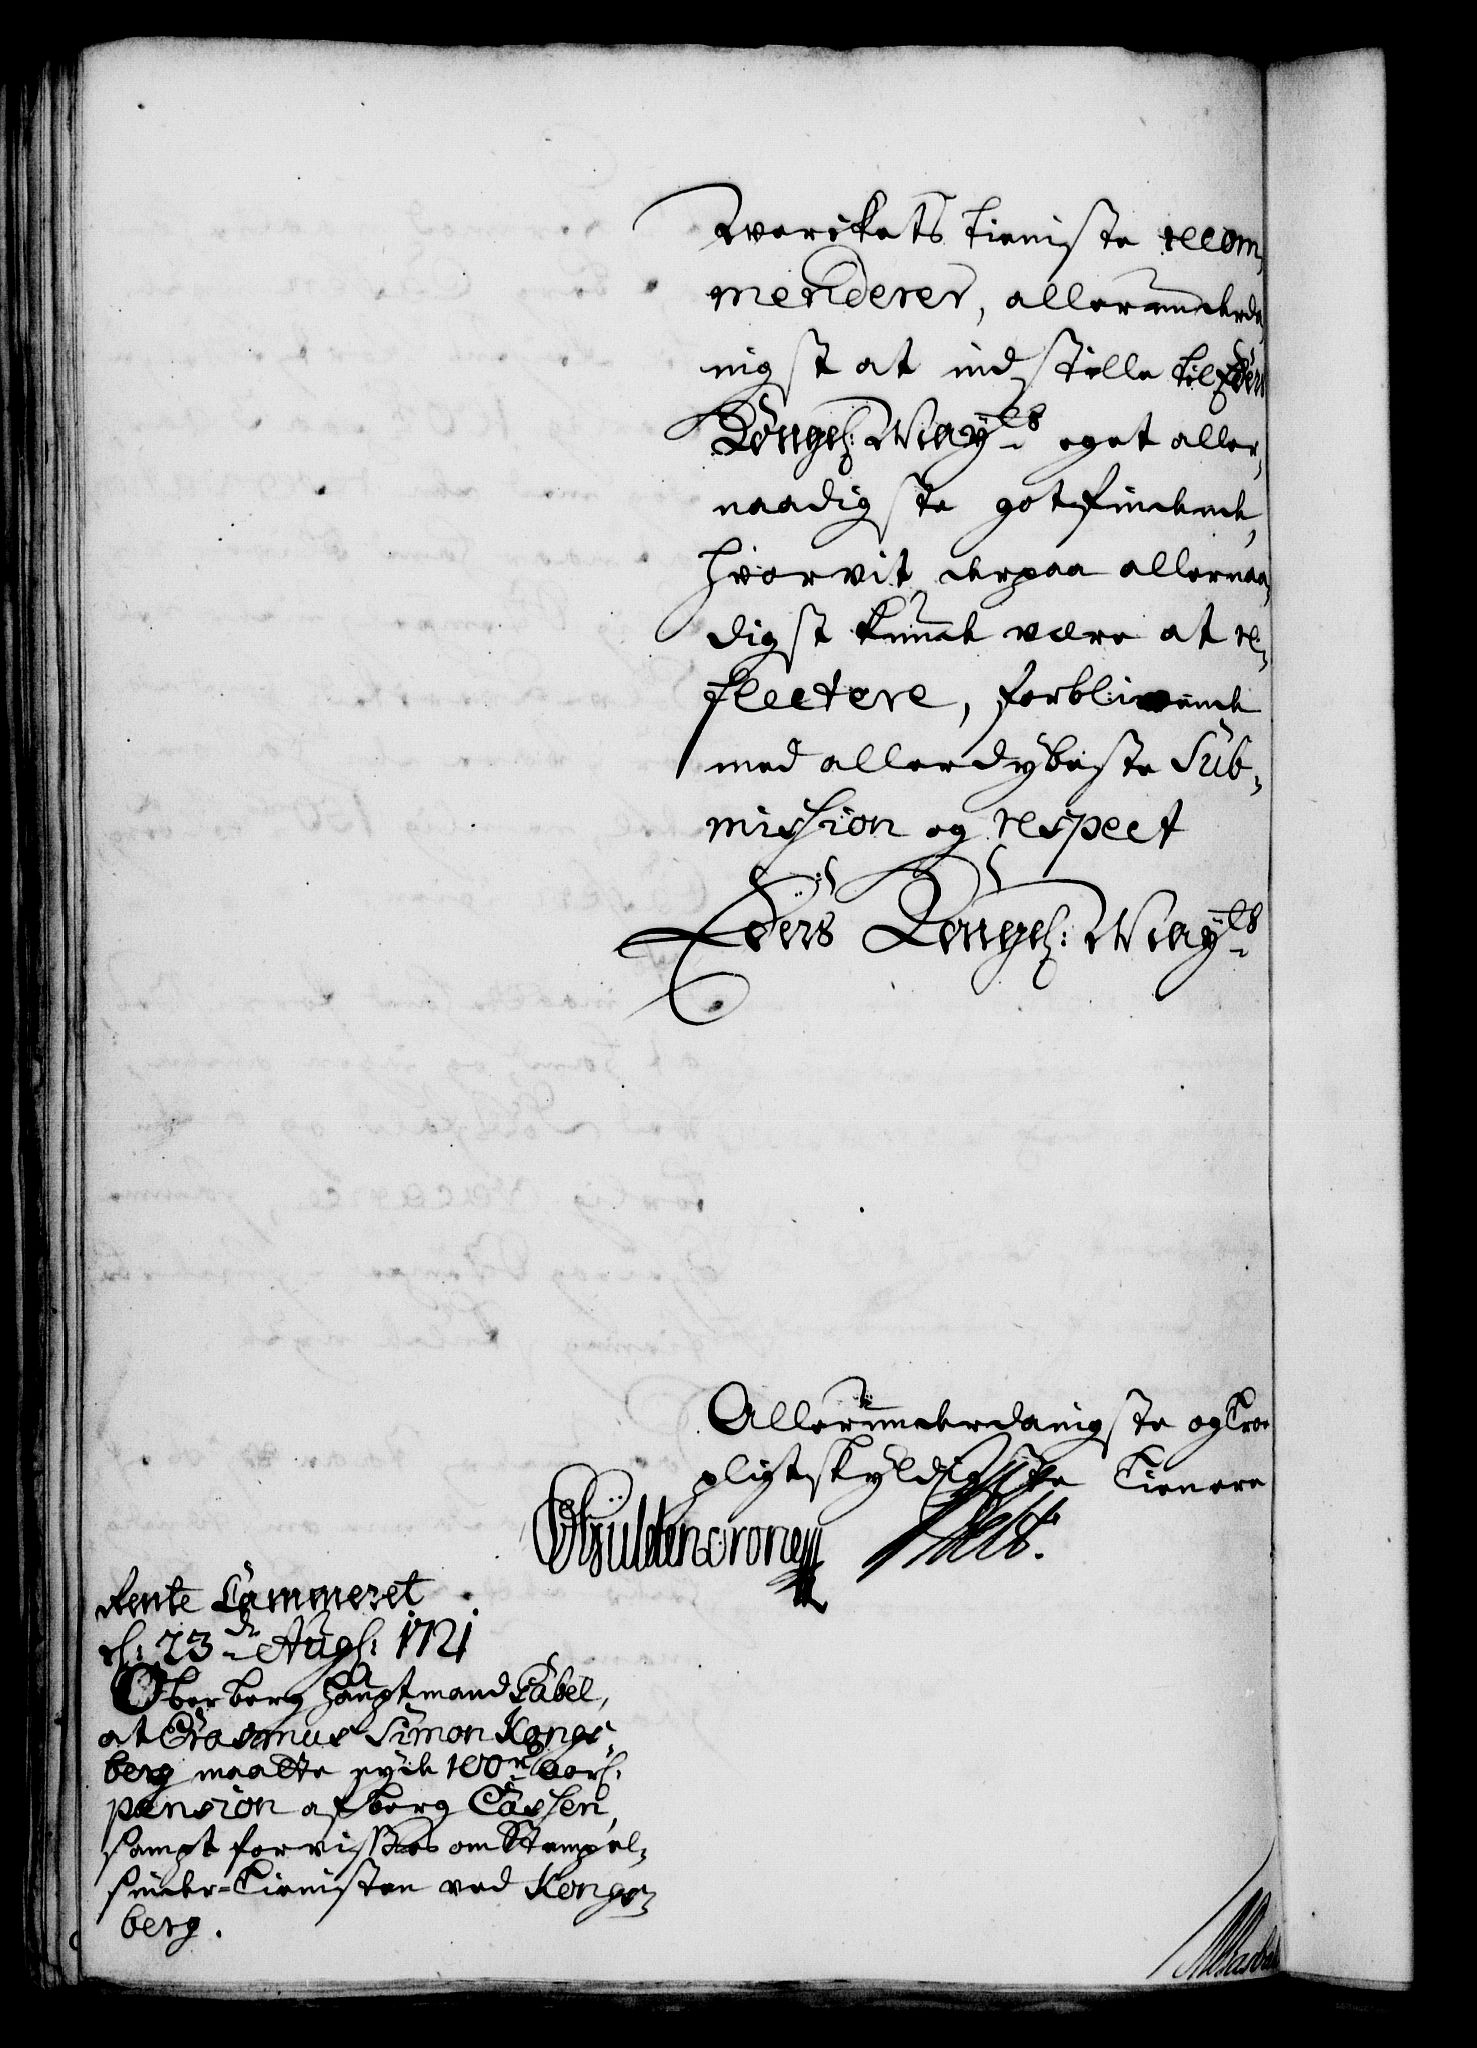 Werckets tieniste recom-
menderer, allerunderda-
nigst at indstille til Eders
Kongel: May:ts eget aller-
naadigste gotfindende,
hvorvit derpaa allernaa-
digst kunde være at re-
flectere, forblivende
med allerdybeste Sub-
mission og respect
Eders Kongel: May:ts
Allerunderdanigste og Troe
pligtskyldigste Tienere
Güldencrone
Rente Cammeret
d: 23de Aug: 1721
Oberberghauptmand Tabel,
at Erasmus Simon Kongs-
berg maatte nyde 100 rd aarl:
pension af berg Cassen,
sampt forvisses om Stempel-
snider-Tienisten ved Kongs-
berg.